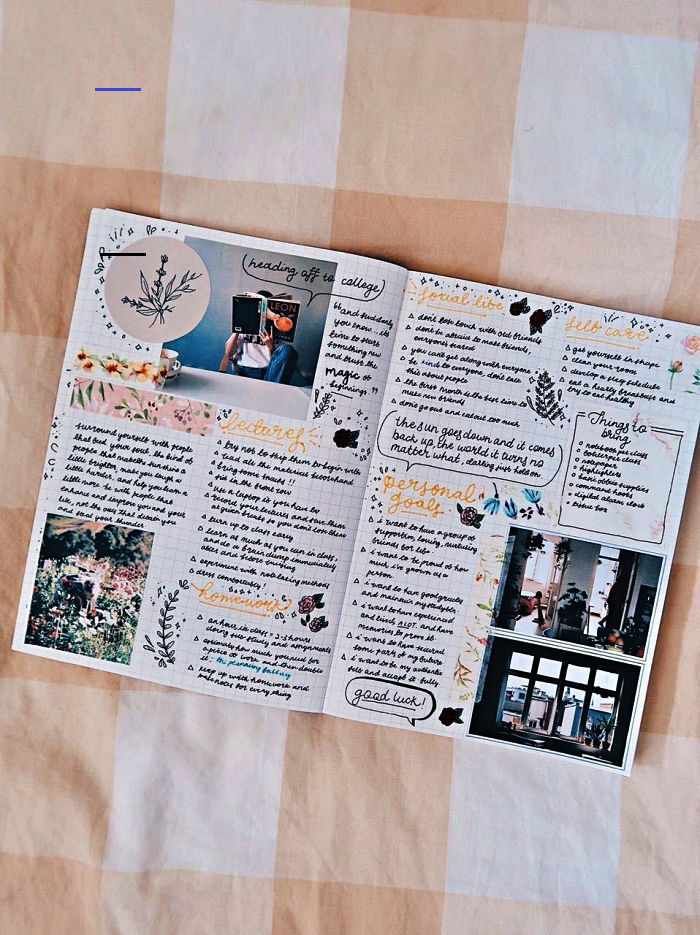 heading off to college
"and suddenly
you know.. its
time to start
something new
and trust the
magic of
beginnings"
surround yourself with people
that feed your soul. the kind of
people that make the sun shine a
little brighter, make you laugh a
little harder, and help you learn a
little more. be with people that
enhance and improve you and your
life, not the ones that
and steal your thunder
lectures
try not to skip them to begin with
read ahead the materials beforehand
bring your books!!
sit in the front row
use a laptop if you have to
record your lectures and save them
at great breaks so you don't lose them
turn up to class early
learn as much as you can in class,
and do a brain dump immediately
after and before
experiment with notetaking methods
dress comfortably!
homework
an hr in class = 2-3 hours
along side study and assignments
estimate how much you need for
a piece of work and then double
it: the planning fallacy
keep up with homework and
make notes for everything
social life
don't lose touch with old friends
don't be afraid to make friends,
everyone's scared
you can't get along with everyone
be kind to everyone. don't care
this about people
the first month is the best time to
make new friends
don't go out and eat out too much
self care
get yourself in shape
clean your room
develop a sleep schedule
eat a hearty breakfast and
try to eat healthy
the sun goes down and it comes
back up, the world it turns no
matter what, darling just hold on
Things to
bring
notebook per class
folder per class
notepaper
highlighters
basic office supplies
command hooks
digital alarm clock
tissue box
personal
goals
i want to have a group of
supportive, loving, nurturing
friends for life
i want to be proud of how
much i've grown as a
person
i want to have good grades
and maintain my
i want to have experienced
and lived ALOT. and have
memories to prove it
i want to have secured
some part of my future
i want to be my authentic
self and accept it fully
good luck!